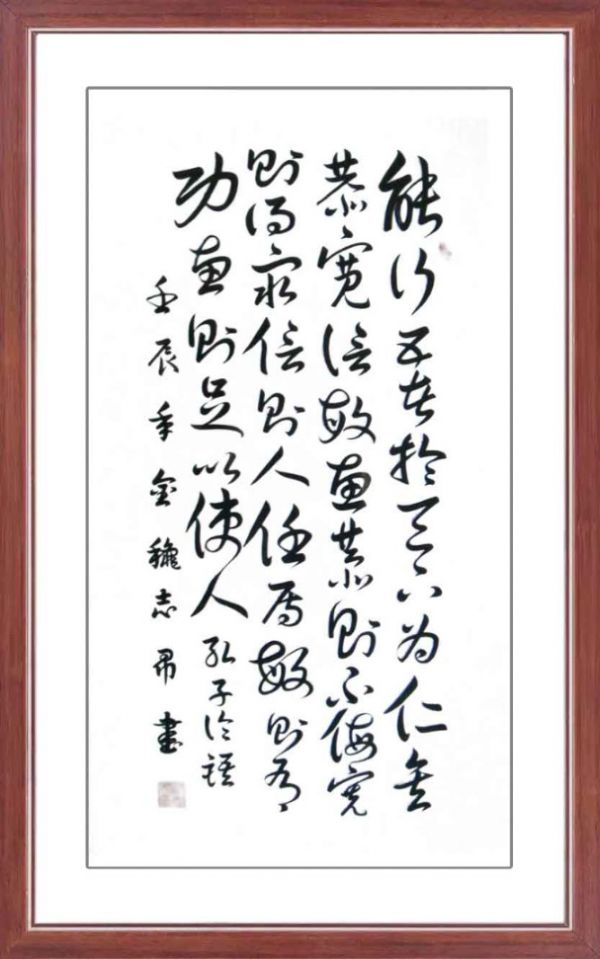 能行五者於天下为仁矣
恭寬信敏惠恭則不侮寬
則得衆信則人任焉敏則有
功惠則足以使人孔子论语
壬辰年金龝志書